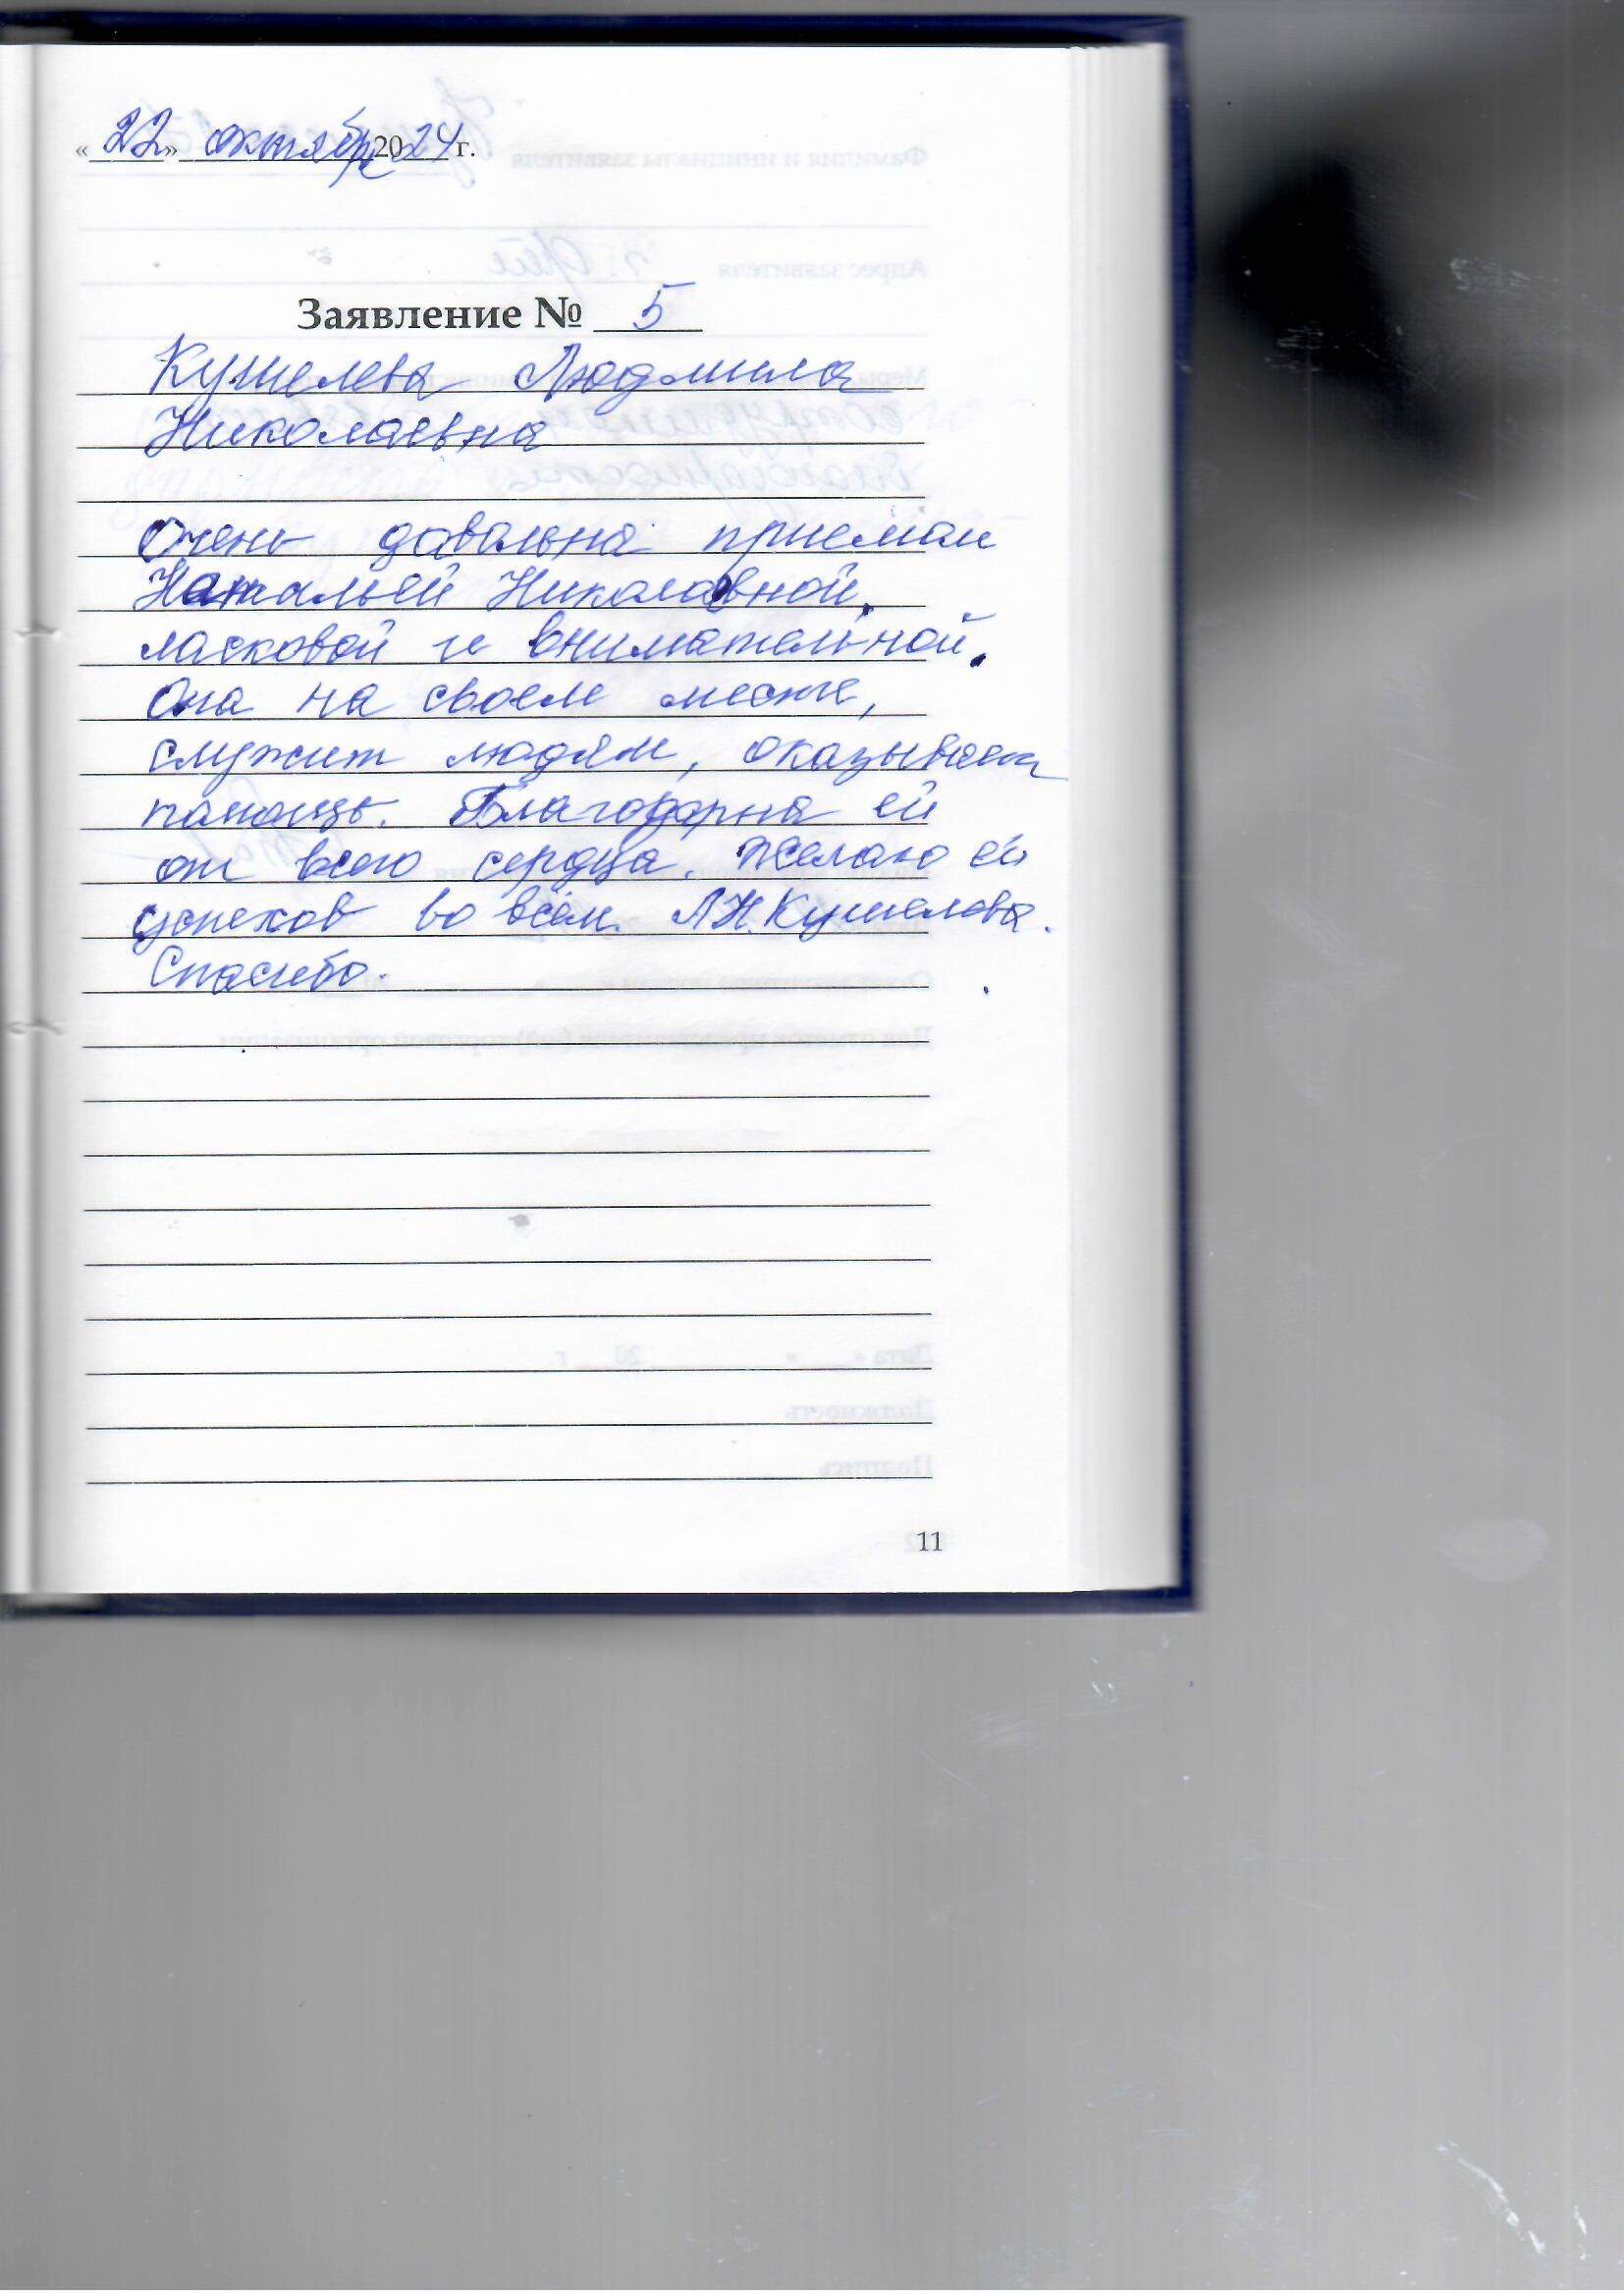 «22» октября 2024 г.
Заявление № 5
Кушелева Людмила
Николаевна
Очень давольна приемам
Натальей Николавной,
ласковой и внимательной.
Она на своем месте,
служит людям, оказывает
помощь. Благодарна ей
от всего сердца. Желаю ей
успехов во всём. Л.Н. Кушелева.
Спасибо.
11